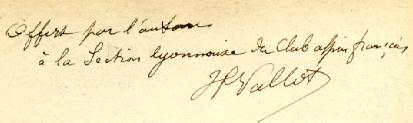 Offert par l'auteur
à la Section lyonnaise du Club alpin français
J. Vallot